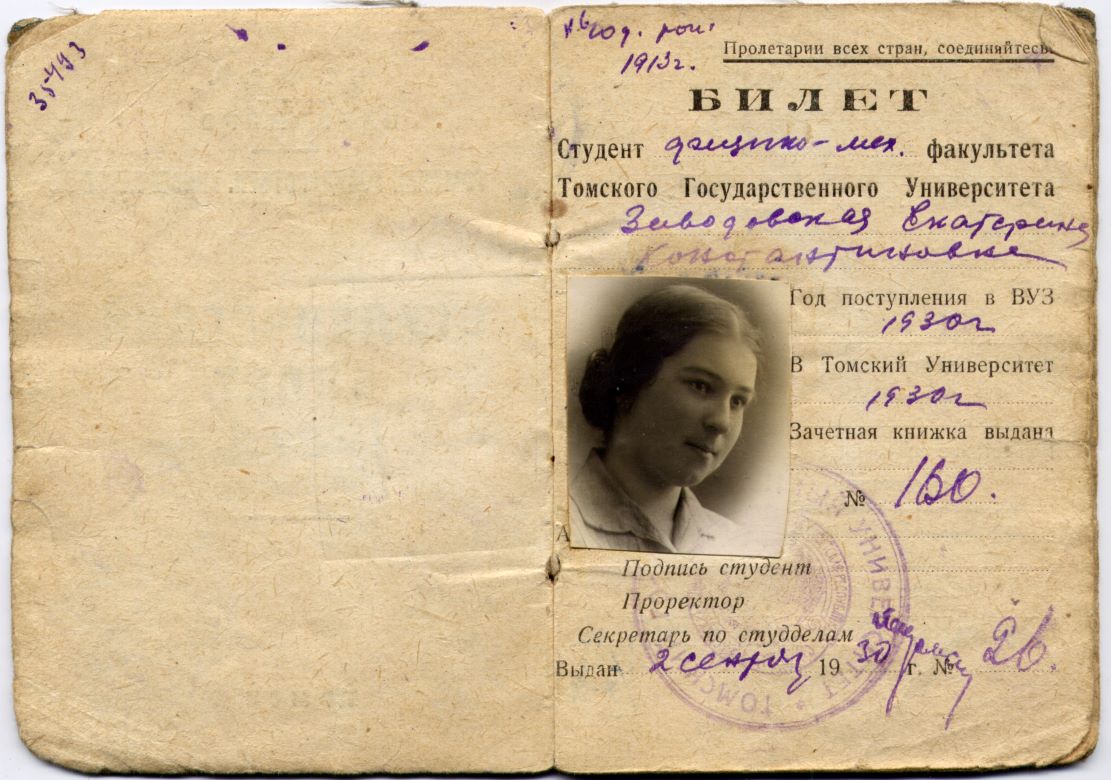 35493
год. рож.
1913г.
Пролетарии всех стран, соединяйтесь
БИЛЕТ
Студент физико-мех. факультета
Томского Государственного Университета
Заводовская Екатерина
Константиновна
Год поступления в ВУЗ
1930г
В Томский Университет
1930г
Зачетная книжка выдана
№ 160.
А
Подпись студент
Проректор
Секретарь по студделам
Выдан 2 сентяб 19 30 г. № 26.
УНИВЕРСИТЕТ * ТОМСК